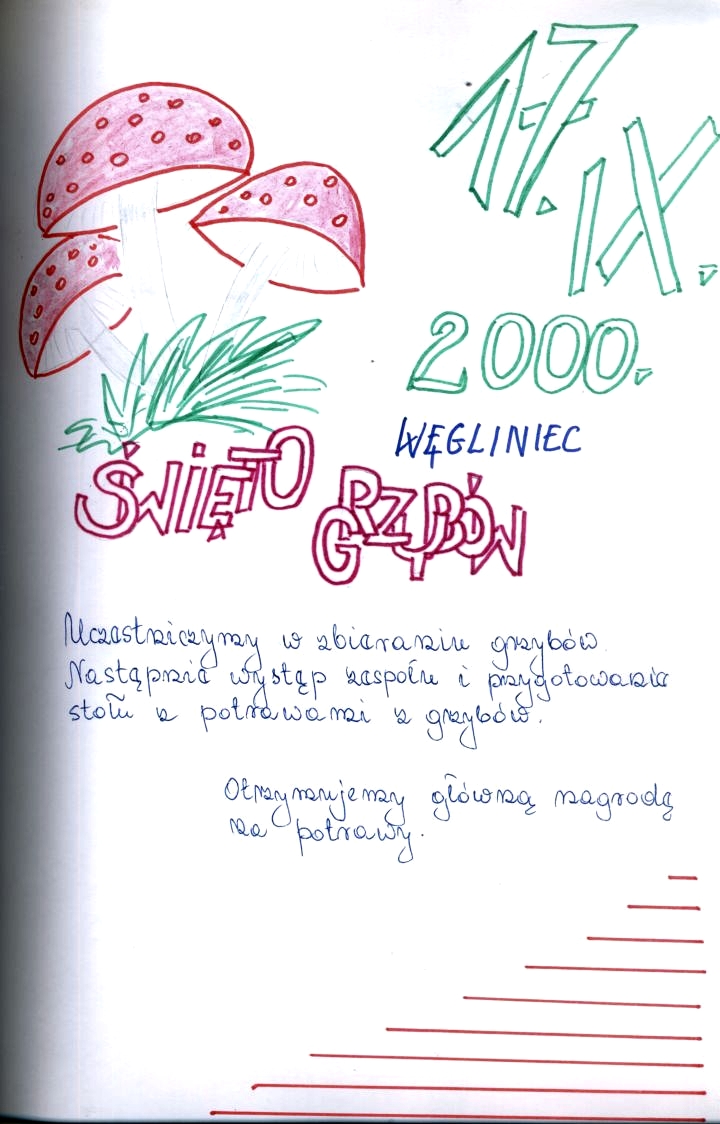 17. IX.
2000.
WĘGLINIEC
ŚWIĘTO GRZYBÓW
Uczestniczymy w zbieraniu grzybów.
Nastąpnie występ zespołu i przygotowanie
stołu z potrawami z grzybów.
Otrzymujemy główną nagrodę
za potrawy.